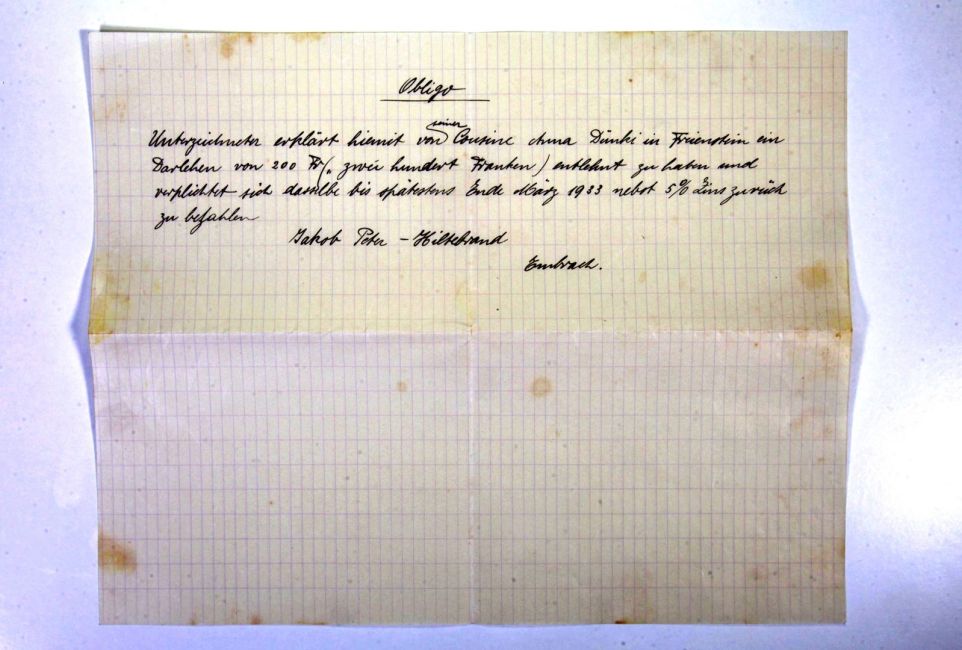 Obligo
Unterzeichneter erklärt hiemit von seiner Cousine Anna Dünki in Freienstein ein
Darlehen von 200 Fr. (zwei hundert Franken) entlehnt zu haben und
verplichtet sich dasselbe bis spätestens Ende März 1933 nebst 5% Zins zurück
zu bezahlen
Jakob Peter - Hiltebrand
Embrach.